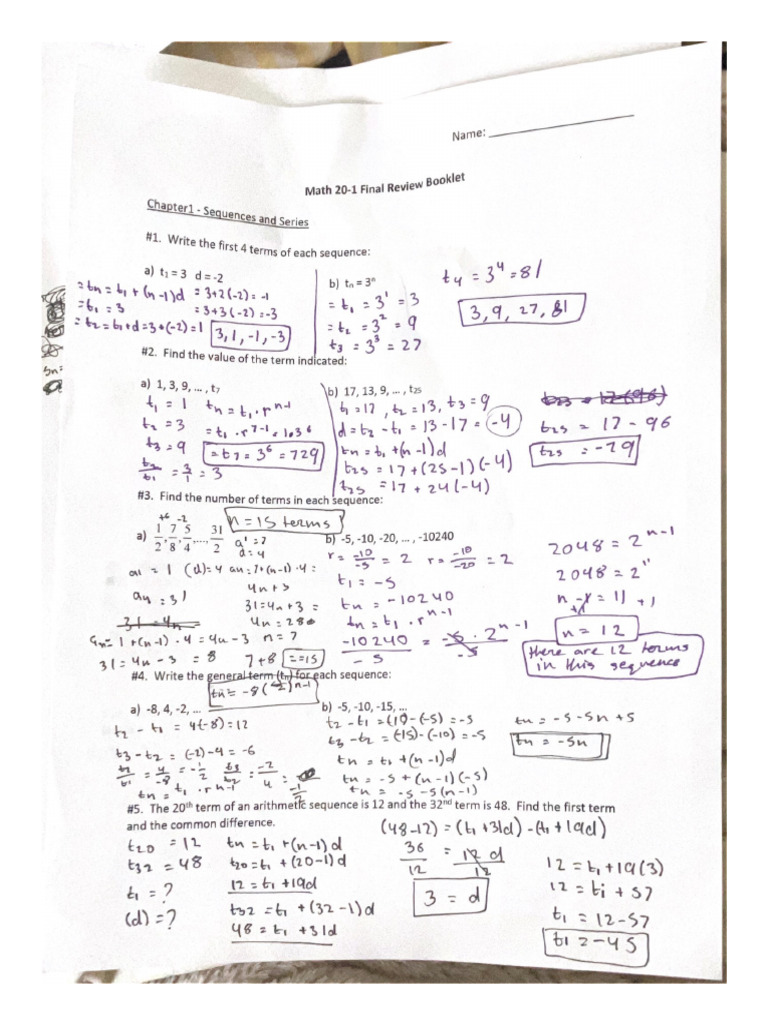 Name:
Math 20-1 Final Review Booklet
Chapter1 - Sequences and Series
#1. Write the first 4 terms of each sequence:
a) t₁ = 3 d = -2
= tn = t1 + (n-1)d = 3+2(-2) = -1
= t1 = 3 = 3+3(-2) = -3
= t2 = t1 + d = 3 + (-2) = 1
3, 1, -1, -3
b) tₙ = 3ⁿ
= t1 = 3¹ = 3
= t2 = 3² = 9
t3 = 3³ = 27
t4 = 3⁴ = 81
3, 9, 27, 81
#2. Find the value of the term indicated:
a) 1, 3, 9, ... , t₇
t1 = 1 tn = t1 · r^n-1
t2 = 3 = t1 · r^7-1 = 1·3^6
t3 = 9 = t7 = 3^6 = 729
t2/t1 = 3/1 = 3
b) 17, 13, 9, ... , t₂₅
t1 = 17, t2 = 13, t3 = 9
d = t2 - t1 = 13 - 17 = -4
tn = t1 + (n-1)d
t25 = 17 + (25-1)(-4)
t25 = 17 + 24(-4)
t25 = 17 - 96
t25 = -79
#3. Find the number of terms in each sequence:
n = 15 terms
+6 -2
a) 1/2, 7/8, 5/4, ...., 31/2
a1 = 7
d = 4
a1 = 1 (d) = 4 an = 7+(n-1)·4 =
an = 31
4n + 3
31 = 4n + 3 =
31 = 4n
4n = 28
an = 1 + (n-1)·4 = 4n - 3 n = 7
31 = 4n - 3 = 8 7+8 = 15
b) -5, -10, -20, ... , -10240
r = -10/-5 = 2 r = -10/-20 = 2
t1 = -5
tn = -10240
tn = t1 · r^n-1
-10240/-5 = -5 · 2^n-1/-5
2048 = 2^n-1
2048 = 2^11
n - 1 = 11 + 1
+1
n = 12
there are 12 terms
in this sequence
#4. Write the general term (tₙ) for each sequence:
tn = -8(-1/2)^n-1
a) -8, 4, -2, ...
t2 - t1 = 4(-8) = 12
t3 - t2 = (-2) - 4 = -6
t2/t1 = 4/-8 = -1/2 t3/t2 = -2/4 = -1/2
tn = t1 · r^n-1
b) -5, -10, -15, ...
t2 - t1 = (10 - (-5) = -5
t3 - t2 = (-15) - (-10) = -5
tn = t1 + (n-1)d
tn = -5 + (n-1)(-5)
tn = -5 -5(n-1)
tn = -5 - 5n + 5
tn = -5n
#5. The 20th term of an arithmetic sequence is 12 and the 32nd term is 48. Find the first term
and the common difference.
t20 = 12
t32 = 48
t1 = ?
(d) = ?
tn = t1 + (n-1)d
t20 = t1 + (20-1)d
12 = t1 + 19d
t32 = t1 + (32-1)d
48 = t1 + 31d
(48-12) = (t1 + 31d) - (t1 + 19d)
36/12 = 12d/12
3 = d
12 = t1 + 19(3)
12 = t1 + 57
t1 = 12 - 57
t1 = -45